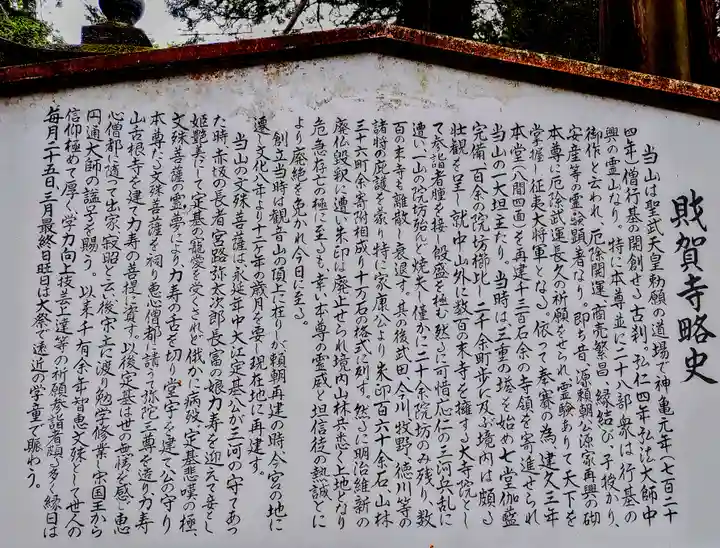 財賀寺略史
当山は聖武天皇勅願の道場で神亀元年(七百二十
四年)僧行基の開創せる古刹。弘仁四年弘法大師中
興の霊山なり。特に本尊並に二十八部衆は行基の
御作と云われ、厄除開運、商売繁昌、縁結び、子授かり、
安産等の霊験顕著なり。即ち昔、源頼朝公源家再興の砌
本尊に厄除武運長久の祈願をせられ、霊験ありて天下を
掌握し征夷大将軍となる。依って奉賽の為、建久三年
本堂(八間四面)を再建、千三百石余の寺領を寄進せられ
当山の一大坦主たり。当時は三重の塔を始め七堂伽藍
完備一百余の院坊櫛比し、二千余町歩に及ぶ境内は頗る
壮観を呈し就中山外に数百の末寺を擁する大寺院とし
て参詣者踵を接し殷盛を極む。然るに可惜応仁の三河兵乱に
遭い一山の院坊殆んど焼失し僅かに二十余院坊のみ残り、数
百の末寺も離散し衰退す。其の後武田、今川、牧野、徳川等の
諸将の庇護を蒙り、特に家康公より朱印百六十余石、山林
三十六町余寄附相成り十万石の格式に列す。然るに明治維新の
廃仏毀釈に遭い朱印は廃止せられ境内山林共悉く上地となり
危急存亡の極に至るも、幸い本尊の霊威と坦信徒の熱誠とに
より廃絶を免かれ今日に至る。
創立当時は観音山の頂上に在りが頼朝再建の時、今宮の地に
遷し文化八年より十三年の歳月を要し現在地に再建す。
当山の文殊菩薩は、永延年中大江定基公が三河の守であっ
た時、赤坂の長者宮路弥太次郎長富の娘力寿を迎えて妾とし
姫艶美にして定基の寵愛を受くされど俄かに病歿、定基悲嘆の極、
文殊菩薩の霊夢により力寿の舌を切り堂宇を建て公の守り
本尊たる文殊菩薩を祠り恵心僧都に請って弥陀三尊を造り力寿
山舌根寺を建て力寿の菩提に資す。以後定基は世の無情を感じ恵
心僧都に随って出家し寂昭と云い後宋に渡り勉学修業し宋国王から
円通大師の諡号を賜う。以来千有余年智恵文殊として世人の
信仰極めて厚く学力向上技芸上達等の祈願参詣者頗る多く縁日は
毎月二十五日、三月最終日曜日は大祭で遠近の学童で賑わう。